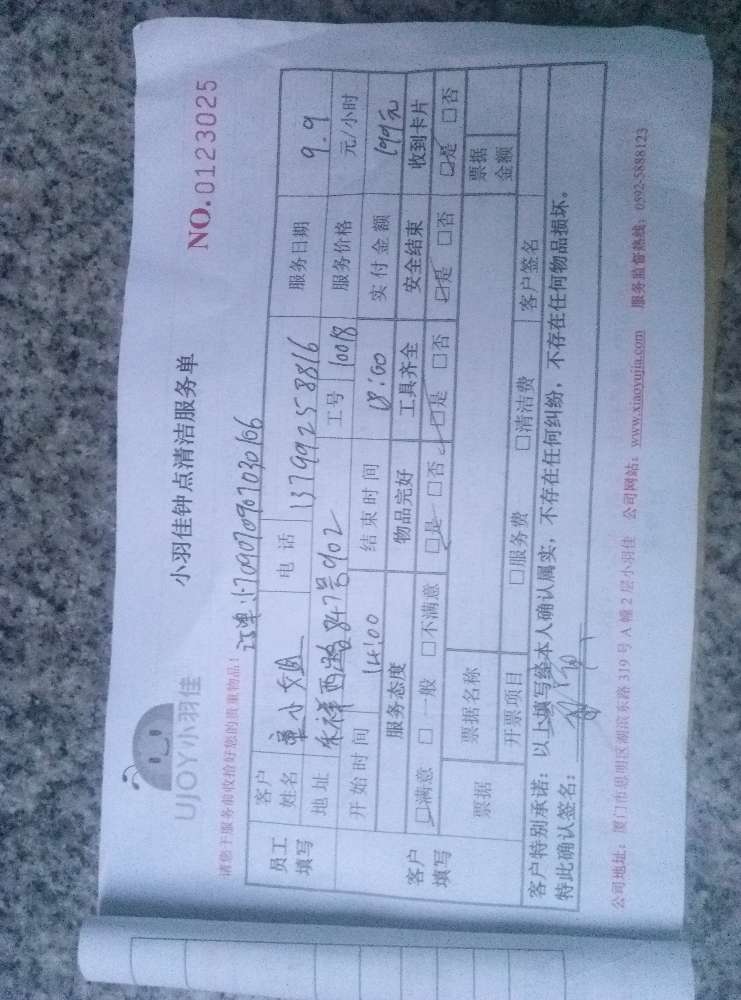 UJOY小羽佳
小羽佳钟点清洁服务单
NO.0123025
请您于服务前收拾好您的贵重物品!
员工填写
客户姓名 小姐 电话 13799258816 服务日期 9.9
地址 祥西 847号902 工号 10018 服务价格 元/小时
客户填写
开始时间 14:00 结束时间 18:00 实付金额 199元
服务态度 物品完好 工具齐全 安全结束 收到卡片
☑满意 □一般 □不满意 ☑是 □否 ☑是 □否 ☑是 □否 ☑是 □否
票据 票据名称 票据金额
开票项目 □服务费 □清洁费 客户签名
客户特别承诺:以上填写经本人确认属实,不存在任何纠纷,不存在任何物品损坏。
特此确认签名:
公司地址:厦门市思明区湖滨东路319号A幢2层小羽佳 公司网站:www.xiaoyujia.com 服务监督热线:0592-5888123